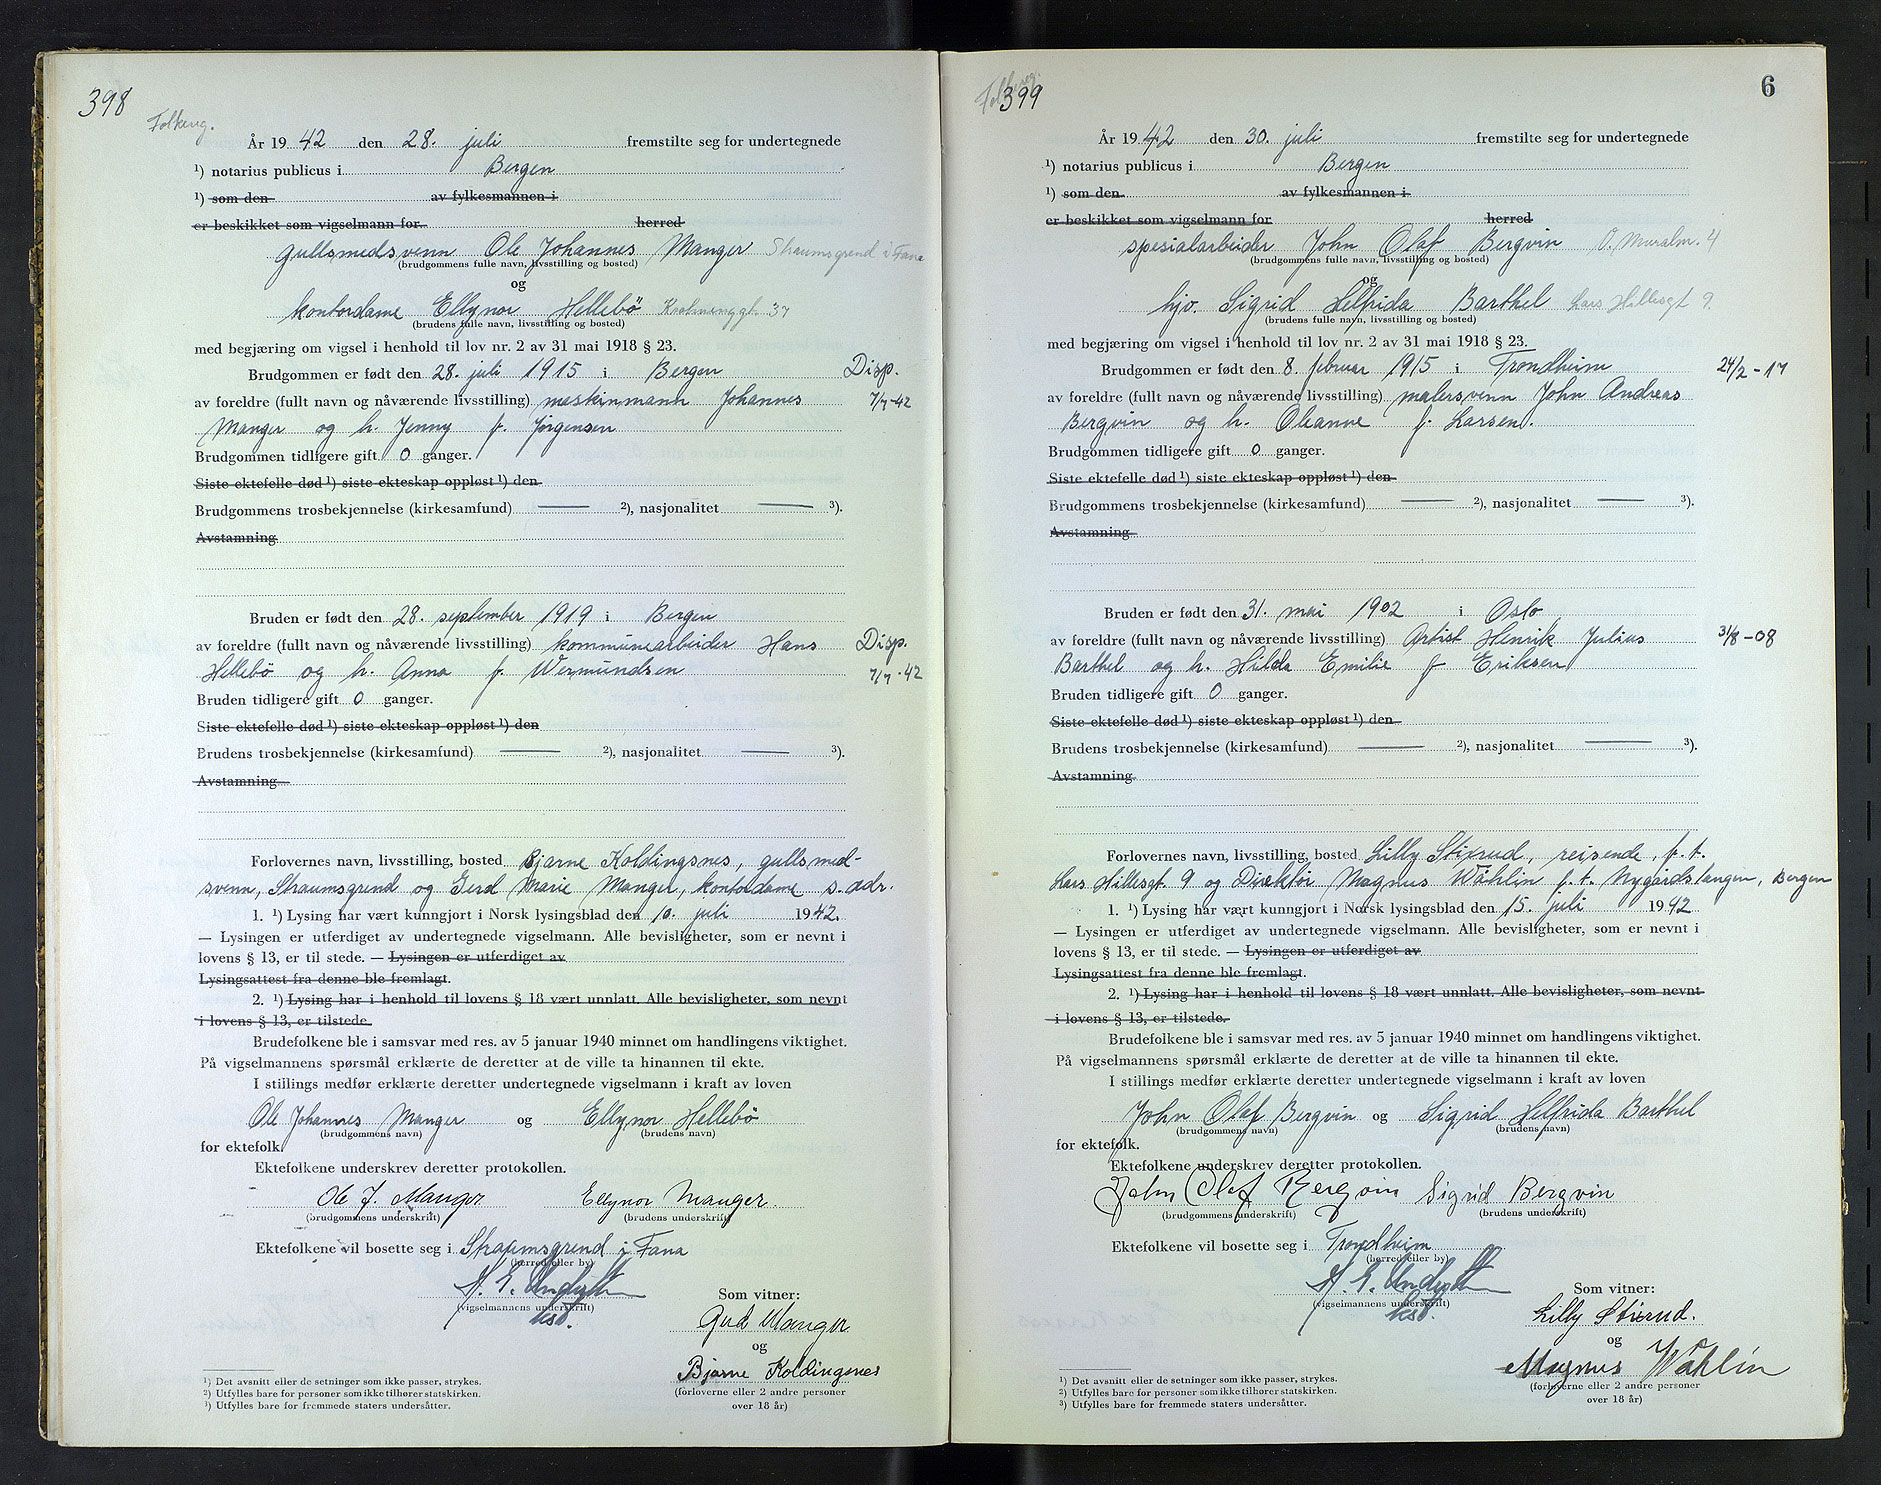 398
Folkereg.
År 19 42 den 28. juli fremstilte seg for undertegnede
¹) notarius publicus i Bergen
¹) som den av fylkesmannen i
er beskikket som vigselmann for herred
gullsmedsvenn Ole Johannes Manger Straumsgrend i Fana
(brudgommens fulle navn, livsstilling og bosted)
og
kontordame Ellynor Hellebö 37
(brudens fulle navn, livsstilling og bosted)
med begjæring om vigsel i henhold til lov nr. 2 av 31 mai 1918 § 23.
Brudgommen er født den 28. juli 1915 i Bergen Disp.
av foreldre (fullt navn og nåværende livsstilling) maskinmann Johannes 7/7-42
Manger og h. Jenny f. Jørgensen
Brudgommen tidligere gift 0 ganger.
Siste ektefelle død ¹) siste ekteskap oppløst ¹) den
Brudgommens trosbekjennelse (kirkesamfund) — ²), nasjonalitet — ³).
Avstamning
Bruden er født den 28. september 1919 i Bergen
av foreldre (fullt navn og nåværende livsstilling) kommunearbeider Hans Disp.
Hellebö og h. Anna f. Wermundsen 7/7-42
Bruden tidligere gift 0 ganger.
Siste ektefelle død ¹) siste ekteskap oppløst ¹) den
Brudens trosbekjennelse (kirkesamfund) — ²), nasjonalitet — ³).
Avstamning
Forlovernes navn, livsstilling, bosted Bjarne Koldingsnes, gullsmed-
svenn, Straumsgrend og Gerd Marie Manger, kontordame s. adr.
1. ¹) Lysing har vært kunngjort i Norsk lysingsblad den 10. juli 1942.
— Lysingen er utferdiget av undertegnede vigselmann. Alle bevisligheter, som er nevnt i
lovens § 13, er til stede. — Lysingen er utferdiget av
Lysingsattest fra denne ble fremlagt.
2. ¹) Lysing har i henhold til lovens § 18 vært unnlatt. Alle bevisligheter, som nevnt
i lovens § 13, er tilstede.
Brudefolkene ble i samsvar med res. av 5 januar 1940 minnet om handlingens viktighet.
På vigselmannens spørsmål erklærte de deretter at de ville ta hinannen til ekte.
I stillings medfør erklærte deretter undertegnede vigselmann i kraft av loven
Ole Johannes Manger og Ellynor Hellebö
(brudgommens navn) (brudens navn)
for ektefolk.
Ektefolkene underskrev deretter protokollen.
Ole J. Manger Ellynor Manger.
(brudgommens underskrift) (brudens underskrift)
Ektefolkene vil bosette seg i Straumsgrend i Fana
(herred eller by)
(vigselmannens underskrift)
Som vitner:
Gerd Manger
og
Bjarne Koldingsnes
(forloverne eller 2 andre personer
over 18 år)
¹) Det avsnitt eller de setninger som ikke passer, strykes.
²) Utfylles bare for personer som ikke tilhører statskirken.
³) Utfylles bare for fremmede staters undersåtter.
399
6
År 19 42 den 30. juli fremstilte seg for undertegnede
¹) notarius publicus i Bergen
¹) som den av fylkesmannen i
er beskikket som vigselmann for herred
spesialarbeider John Olaf Bergvin Ö. Muralm. 4
(brudgommens fulle navn, livsstilling og bosted)
og
hjv. Sigrid Helfrida Barthel Lars Hillesgt 9
(brudens fulle navn, livsstilling og bosted)
med begjæring om vigsel i henhold til lov nr. 2 av 31 mai 1918 § 23.
Brudgommen er født den 8. februar 1915 i Trondheim 24/2-17
av foreldre (fullt navn og nåværende livsstilling) malersvenn John Andreas
Bergvin og h. Oleanne f. Larsen.
Brudgommen tidligere gift 0 ganger.
Siste ektefelle død ¹) siste ekteskap oppløst ¹) den
Brudgommens trosbekjennelse (kirkesamfund) — ²), nasjonalitet — ³).
Avstamning
Bruden er født den 31. mai 1902 i Oslo
av foreldre (fullt navn og nåværende livsstilling) Artist Henrik Julius 31/8-08
Barthel og h. Hilda Emilie f Eriksen
Bruden tidligere gift 0 ganger.
Siste ektefelle død ¹) siste ekteskap oppløst ¹) den
Brudens trosbekjennelse (kirkesamfund) — ²), nasjonalitet — ³).
Avstamning
Forlovernes navn, livsstilling, bosted Lilly Stixrud, reisende, f.t.
Lars Hillesgt. 9 og Direktör Magnus Wåhlin f.t. Nygårdstangen, Bergen
1. ¹) Lysing har vært kunngjort i Norsk lysingsblad den 15. juli 1942
— Lysingen er utferdiget av undertegnede vigselmann. Alle bevisligheter, som er nevnt i
lovens § 13, er til stede. — Lysingen er utferdiget av
Lysingsattest fra denne ble fremlagt.
2. ¹) Lysing har i henhold til lovens § 18 vært unnlatt. Alle bevisligheter, som nevnt
i lovens § 13, er tilstede.
Brudefolkene ble i samsvar med res. av 5 januar 1940 minnet om handlingens viktighet.
På vigselmannens spørsmål erklærte de deretter at de ville ta hinannen til ekte.
I stillings medfør erklærte deretter undertegnede vigselmann i kraft av loven
John Olaf Bergvin og Sigrid Helfrida Barthel
(brudgommens navn) (brudens navn)
for ektefolk.
Ektefolkene underskrev deretter protokollen.
John Olaf Bergvin Sigrid Bergvin
(brudgommens underskrift) (brudens underskrift)
Ektefolkene vil bosette seg i Trondheim
(herred eller by)
(vigselmannens underskrift)
Som vitner:
Lilly Stixrud.
og
Magnus Wåhlin
(forloverne eller 2 andre personer
over 18 år)
¹) Det avsnitt eller de setninger som ikke passer, strykes.
²) Utfylles bare for personer som ikke tilhører statskirken.
³) Utfylles bare for fremmede staters undersåtter.